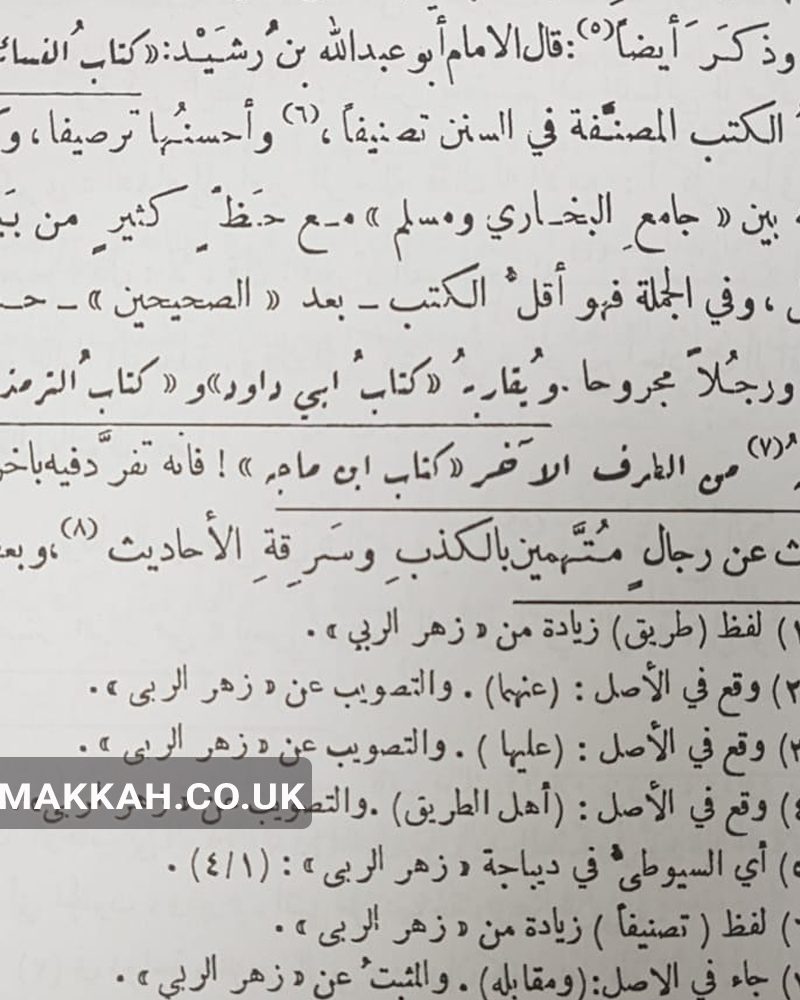 وذكَرَ أيضاً(٥): قال الامام أبو عبدالله بن رُشَيْد: « كتابُ النسائ
الكتب المصنَّفة في السنن تصنيفاً،(٦) وأحسنُها ترصيفا، و
بين « جامعِ البخاري ومسلم » مع حَظٍّ كثيرٍ من بَ
، وفي الجملة فهو أقلُّ الكتب ـ بعد « الصحيحين » ـ حـ
ورجُلاً مجروحا. ويُقاربهُ « كتابُ ابي داود» و « كتابُ الترمذ
(٧) من الطرف الآخَر « كتاب ابن ماجه » ! فانه تفرَّد فيه باخر
عن رجالٍ مُتَّهمين بالكذبِ وسَرِقةِ الأحاديث (٨)، وبعـ
١) لفظ (طريق) زيادة من « زهر الربي ».
٢) وقع في الأصل : (عنهما) . والتصويب عن « زهر الربى ».
٣) وقع في الأصل : (عليها ) . والتصويب عن « زهر الربى ».
MAKKAH.CO.UK
٤) وقع في الأصل : (أهل الطريق) . والتصويب عن « زهر الربى ».
٥) أي السيوطيُّ في ديباجة « زهر الربى » : (٤/١) .
٦) لفظ ( تصنيفاً ) زيادة من « زهر الربى ».
٧) جاء في الاصل: (ومقابله) . والمثبتُ عن « زهر الربي ».